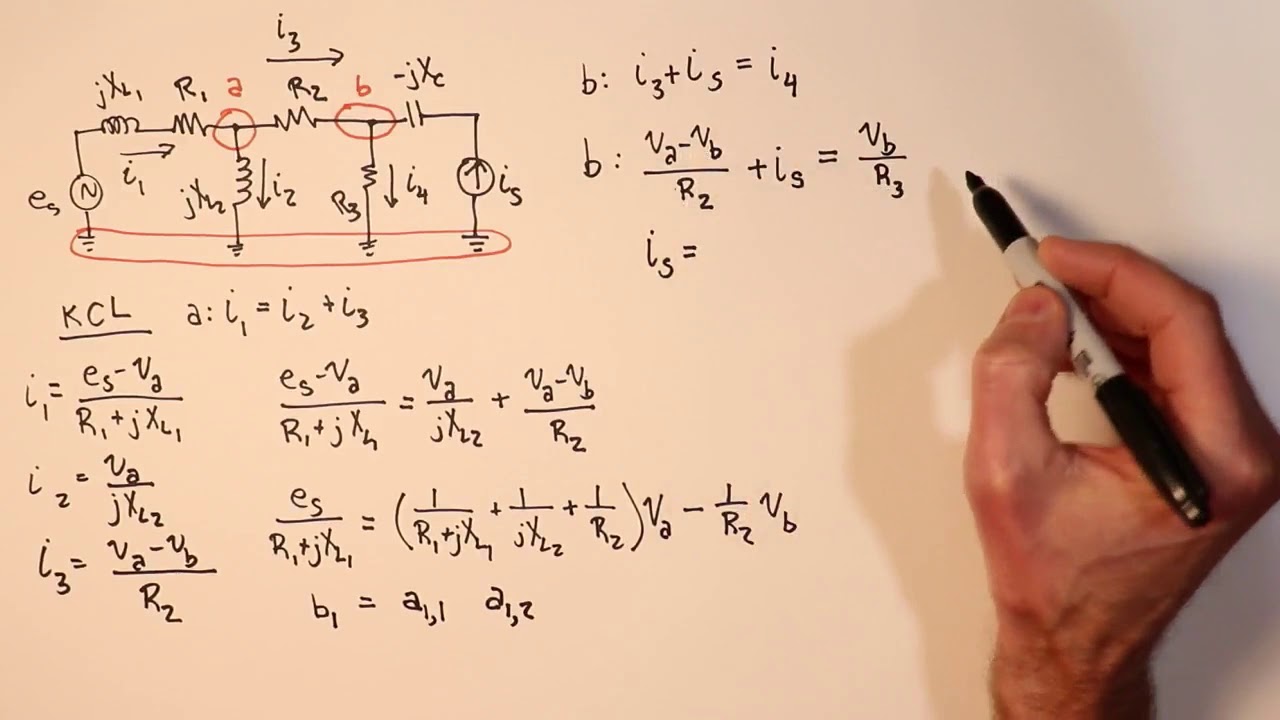 i₃
jX_L₁ R₁ a R₂ b -jX_c
i₁
e_s jX_L₂ i₂ R₃ i₄ i_s
KCL a: i₁ = i₂ + i₃
i₁ = (e_s - V_a)/(R₁ + jX_L₁)
i₂ = V_a/(jX_L₂)
i₃ = (V_a - V_b)/R₂
(e_s - V_a)/(R₁ + jX_L₁) = V_a/(jX_L₂) + (V_a - V_b)/R₂
e_s/(R₁ + jX_L₁) = (1/(R₁ + jX_L₁) + 1/(jX_L₂) + 1/R₂)V_a - 1/R₂ V_b
b₁ = a₁,₁ a₁,₂
b: i₃ + i_s = i₄
b: (V_a - V_b)/R₂ + i_s = V_b/R₃
i_s =